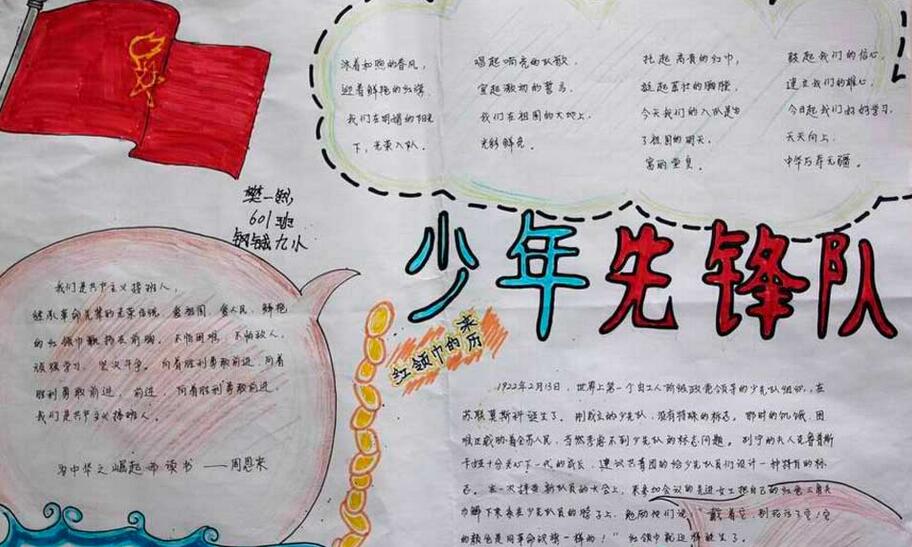 沐着和煦的春风，
迎着鲜艳的红旗，
我们在明媚的阳光
下，光荣入队。
唱起响亮的队歌
宣起激动的誓言，
我们在祖国的大地上，
光彩鲜亮。
扎起高贵的红巾
挺起茁壮的胸膛
今天我们的入队是为
了祖国的明天，
富丽堂皇。
鼓起我们的信心，
建立我们的雄心，
今日起我们好好学习，
天天向上，
中华万寿无疆。
樊一
601班
钢城九小
少年先锋队
红领巾的来历
我们是共产主义接班人，
继承革命先辈的光荣传统，爱祖国，爱人民，鲜艳
的红领巾飘扬在前胸。不怕困难，不怕敌人，
顽强学习，坚决斗争。向着胜利勇敢前进，向着
胜利勇敢前进，前进，向着胜利勇敢前进，
我们是共产主义接班人。
为中华之崛起而读书——周恩来
1922年2月13日，世界上第一个由工人阶级政党领导的少先队组织，在
苏联莫斯科诞生了。刚成立的少先队，没有特殊的标志。那时的饥饿、困
难正威胁着全苏人民，当然考虑不到少先队的标志问题。列宁的夫人克鲁普斯
卡娅十分关心下一代的成长，建议共青团的给少先队员们设计一种特有的标
志。在一次接受新队员的大会上，来参加会议的先进女工把自己的红色三角头
巾解下来系在少先队员的脖子上，勉励他们说"戴着它，别玷污了它！它
的颜色是同革命战旗一样的！"红领巾就这样诞生了。